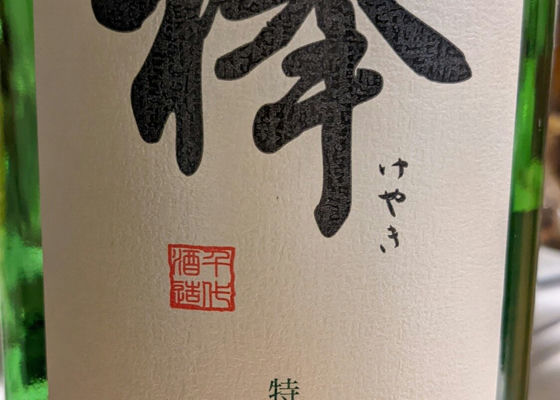 けやき
千代
酒造
特